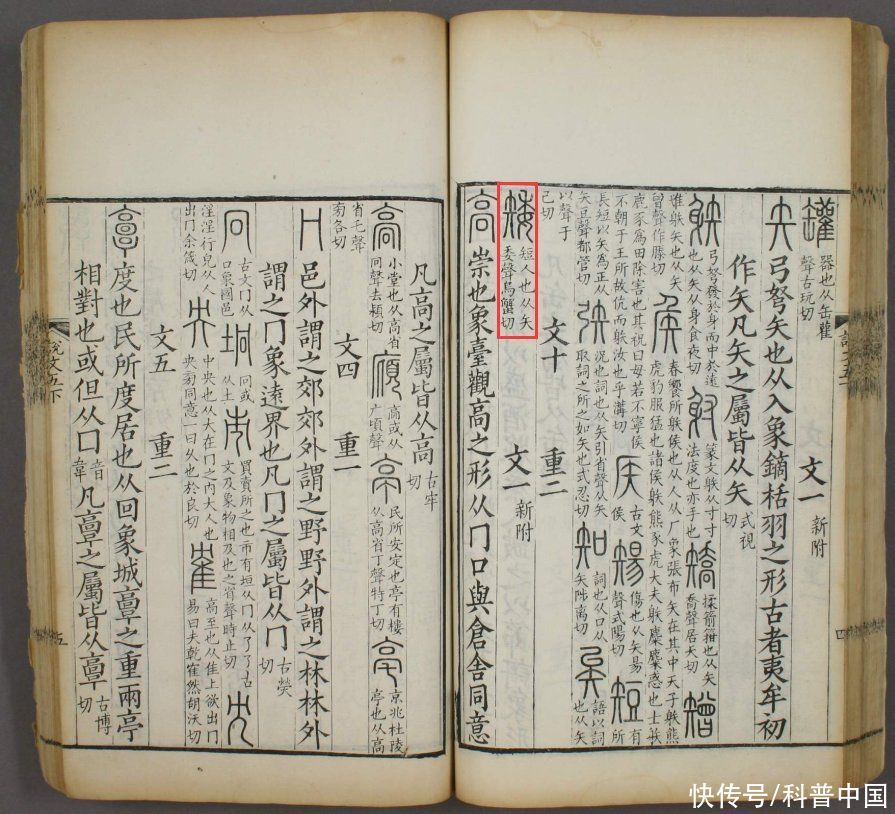 罐 器也从缶雚聲古玩切 文一 新附
矢 弓弩矢也从入象鏑栝羽之形古者夷牟初
作矢凡矢之屬皆从矢 式視切
䠶 弓弩發於身而中於遠也从矢从身食夜切 射 篆文䠶从寸寸法度也亦手也 矯 揉箭箝也从矢喬聲居夭切 矰
隿䠶矢也从矢曾聲作滕切 矦 春饗所䠶矦也从人从厂象張布矢在其中天子䠶熊虎豹服猛也諸侯䠶熊豕虎大夫䠶麋麋惑也士䠶
鹿豕爲田除害也其祝曰毋若不寧矦不朝于王所故伉而䠶汝也乎溝切 𥎦 古文矦 𥏫 傷也从矢昜聲式陽切 短 有所
長短以矢爲正从矢豆聲都管切 矤 况也詞也从矢引省聲从矢取詞之所之如矢也式忍切 知 詞也从口从矢陟离切 矣 語以詞也从矢
以聲于己切 文十 重二
矮 短人也从矢委聲烏蟹切 文一 新附
高 崇也象臺觀高之形从冂口與倉舍同意
四
凡高之屬皆从高 古牢切
高 小堂也从高省冋聲去潁切 廎 高或从广頃聲 亭 民所安定也亭有樓从高省丁聲特丁切 亳 京兆杜陵亭也从高
省乇聲旁各切 文四 重一
冂 邑外謂之郊郊外謂之野野外謂之林林外
謂之冂象遠界也凡冂之屬皆从冂 古熒切
冋 古文冂从口象國邑 坰 冋或从土 市 買賣所之也市有垣从冂从乁乁古文及象物相及也之省聲時止切 冘
淫淫行皃从人出冂余箴切 央 中央也从大在冂之內大人也央㫄同意一曰久也於良切 隺 高至也从隹上欲出冂易曰夫乾隺然胡沃切
文五 重二
𩫖 度也民所度居也从回象城𩫖之重兩亭
相對也或但从口 音韋 凡𩫖之屬皆从𩫖 古博切
說文五下
五
快传号/科普中国